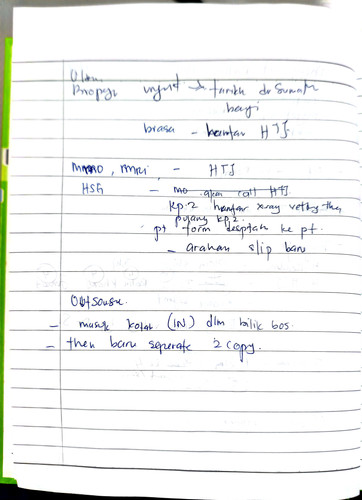 urgent → tarikh dr Sumatr
bagi
biasa - hantar HTJ.
MMNO, MMRI, - HTJ
HSG - mo akan call HTJ
kp.2 hantar xray vetting then
pulang kp.2.
pt form despatch ke pt.
- arahan slip baru
Outsource.
- masuk kotak (IN) dlm bilik bos.
- then baru seperate 2 copy.